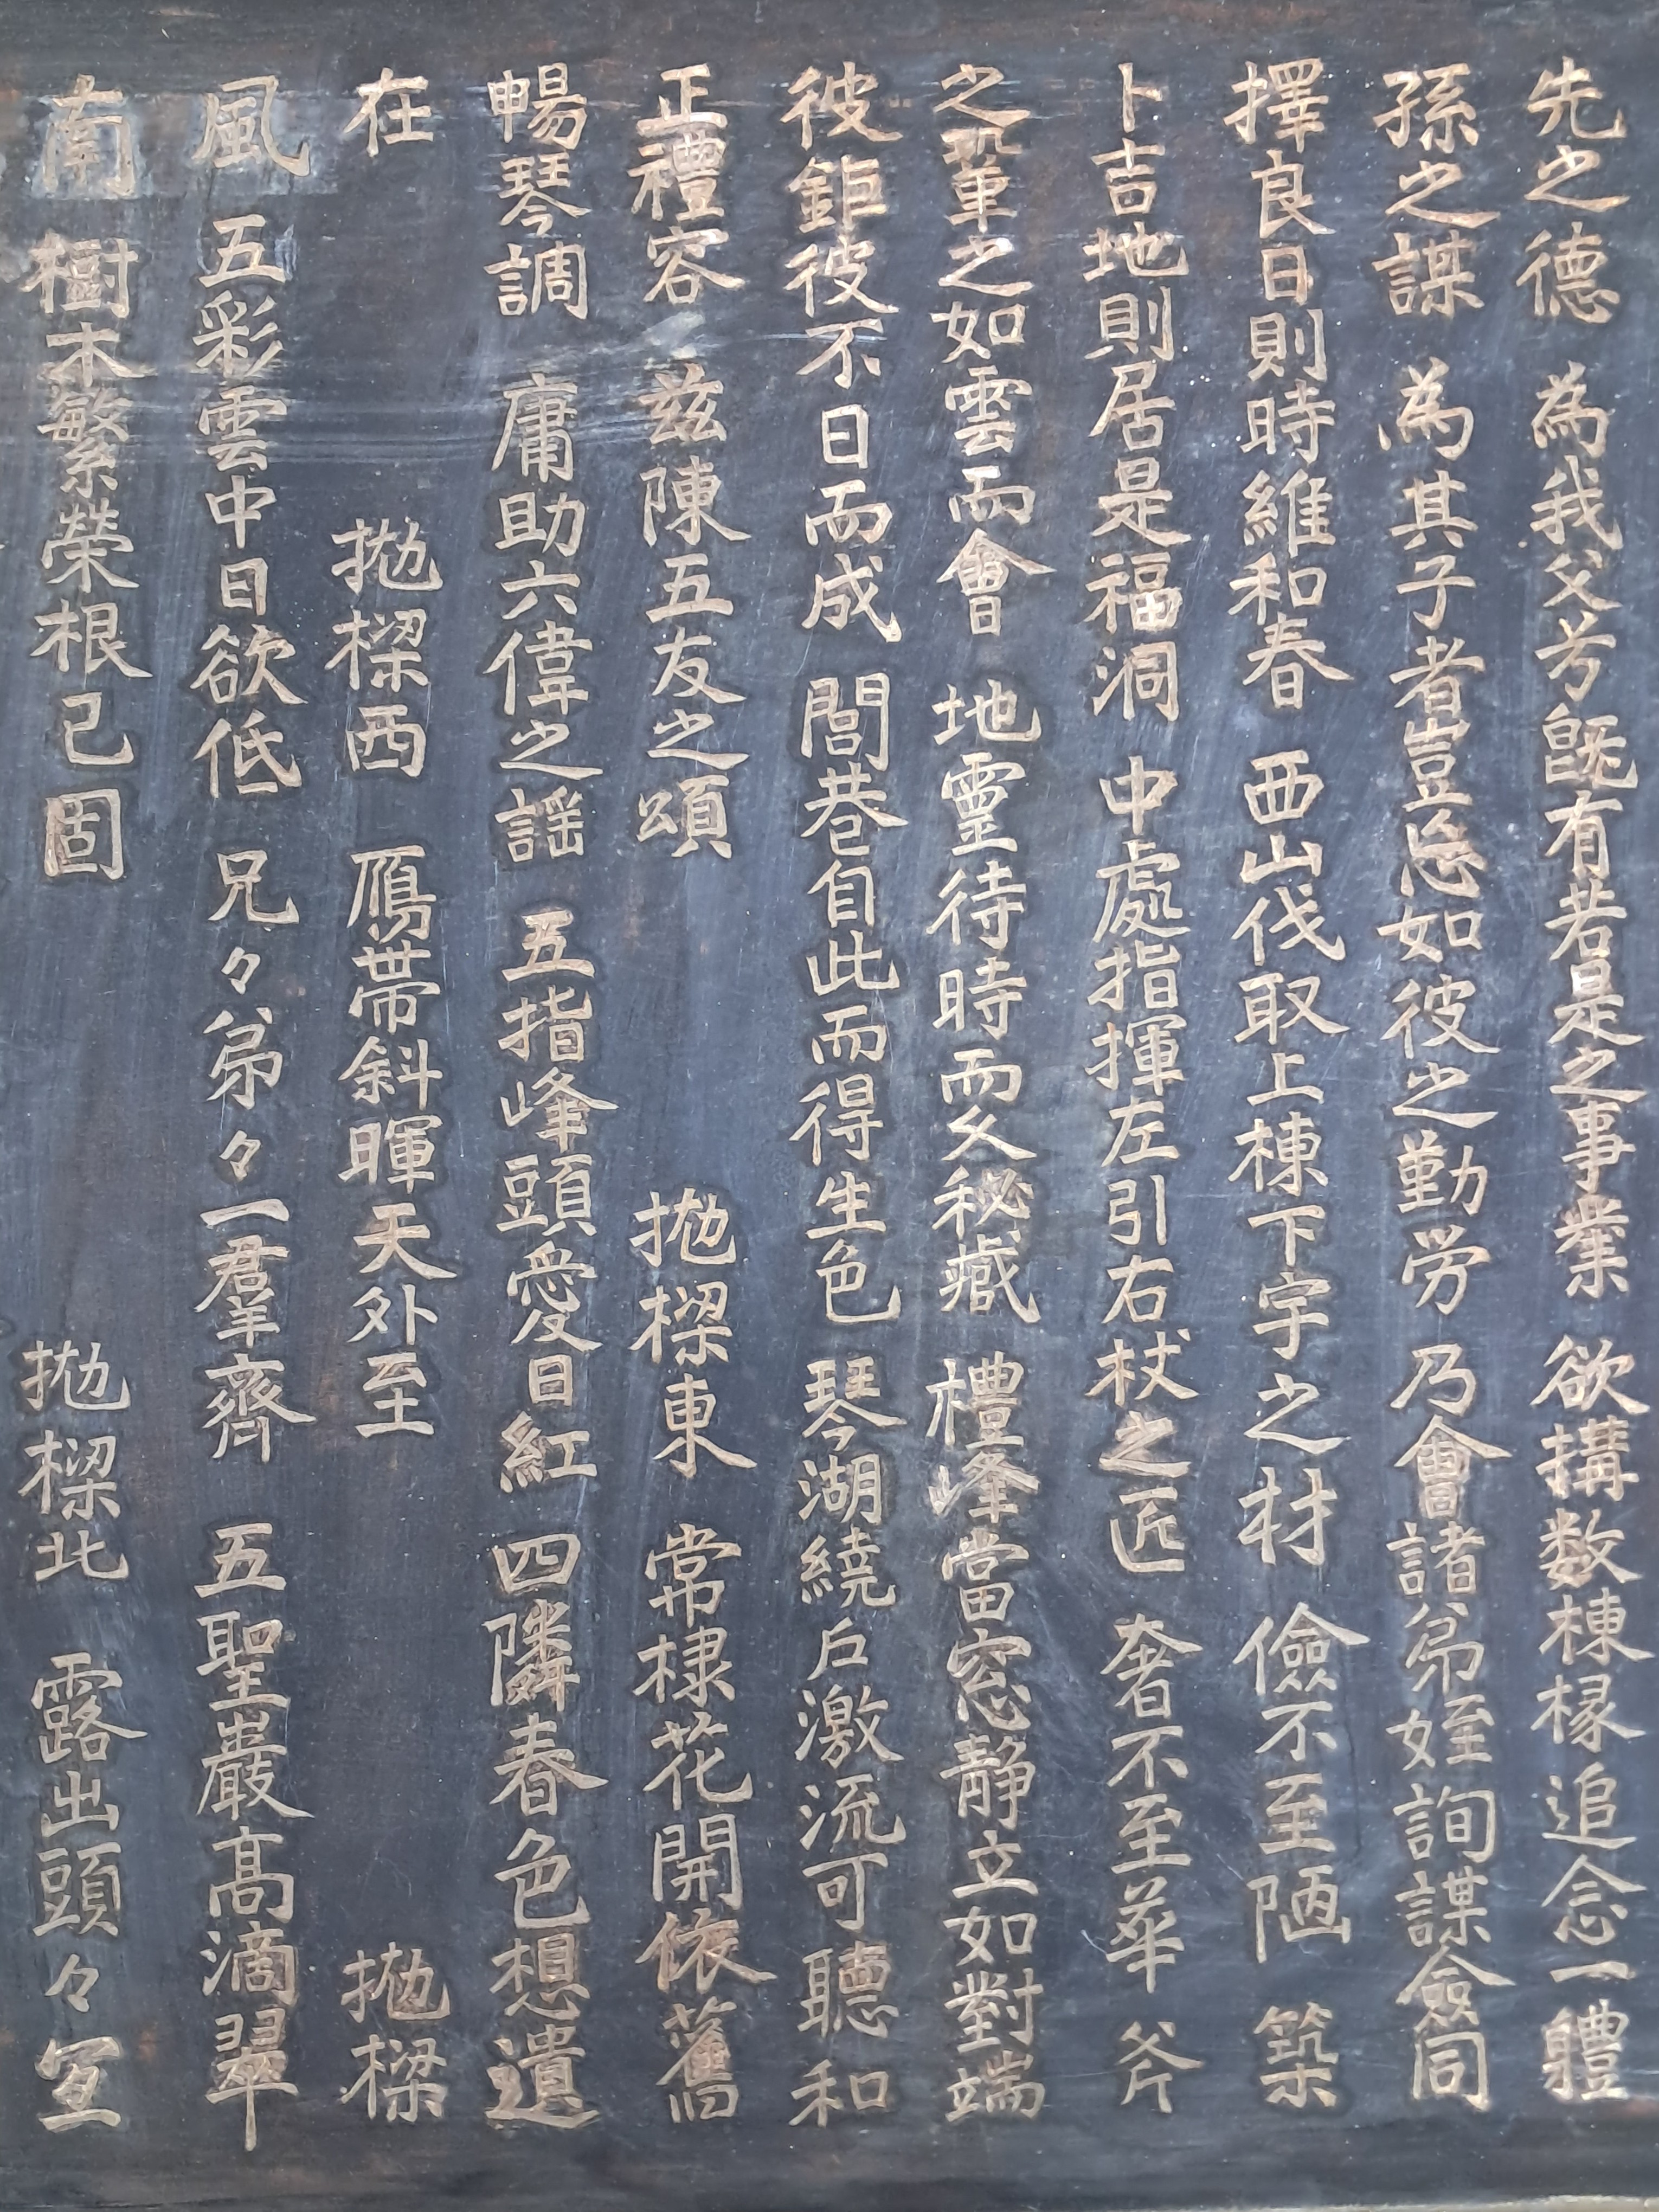 先之德 為我父兮旣有若是之事業 欲搆数棟椽追念一體
孫之謀 為其子者豈忘如彼之勤労 乃會諸弟姪詢謀僉同
擇良日則時維和春 西山伐取上棟下宇之材 儉不至陋 築
卜吉地則居是福洞 中處指揮左引右杖之匠 奢不至華 斧
之鞏之如雲而會 地靈待時而久秘藏 禮峰當窓静立如對端
彼鉅彼不日而成 閭巷自此而得生色 琴湖繞戶激流可聽和
正禮容 玆陳五友之頌 拋樑東 常棣花開依舊
暢琴調 庸助六偉之謡 五指峰頭愛日紅 四隣春色想遺
在 拋樑西 鴈帯斜暉天外至 拋樑
風 五彩雲中日欲低 兄々弟々一羣齊 五聖巖髙滴翠
南 樹木繁榮根已固 拋樑北 露出頭々宜